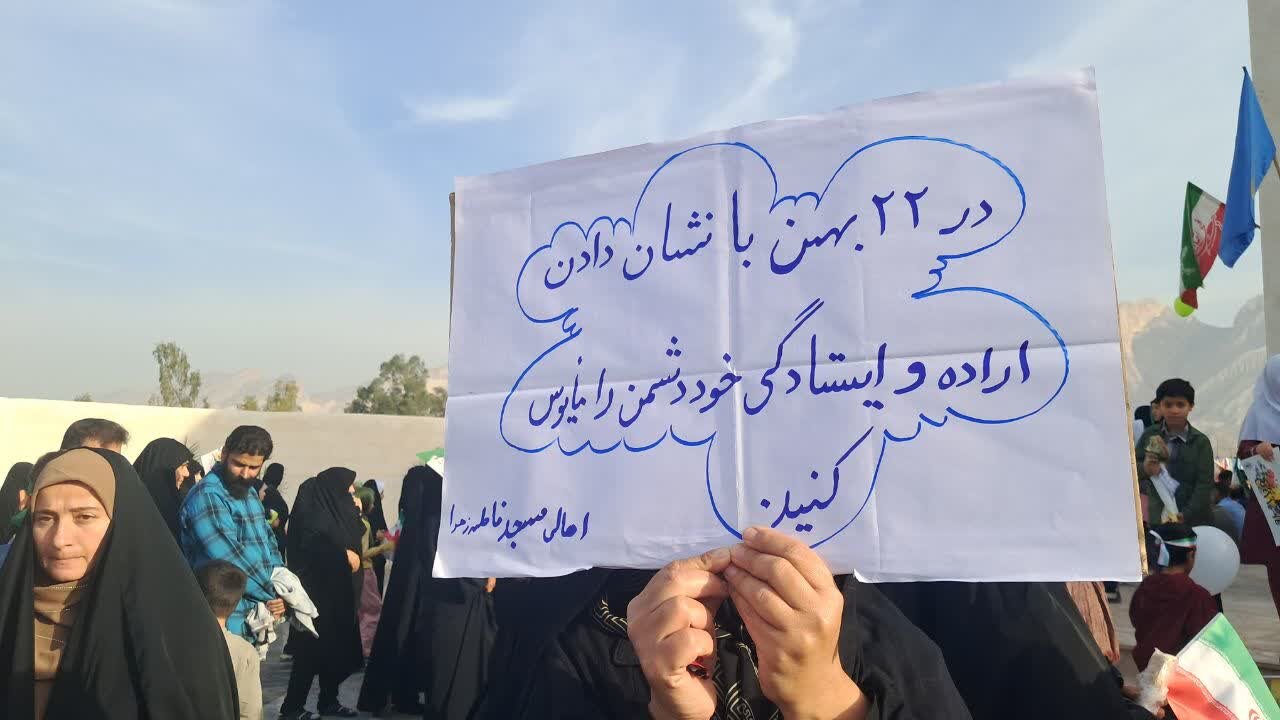 در ۲۲ بهمن با نشان دادن
اراده و ایستادگی خود دشمن را مأیوس
کنید.
اهالی مسجد فاطمه زهرا